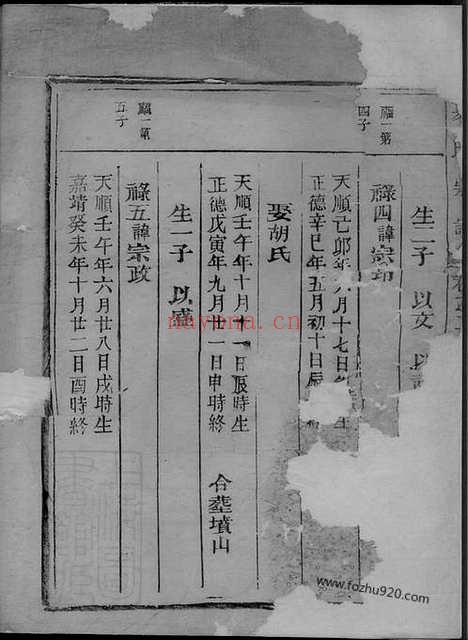 生二子 以文 以
祿四諱宗
天順己卯年八月十七日 生
正德辛巳年五月初十日辰
娶胡氏
天順壬午年十月十一日辰時生
正德戊寅年九月廿一日申時終 合塟墳山
生一子 以盛
祿五諱宗政
天順壬午年六月廿八日戌時生
嘉靖癸未年十月廿二日酉時終
第一
四子
第一
五子
nayona.cn
www.fozhu920.com